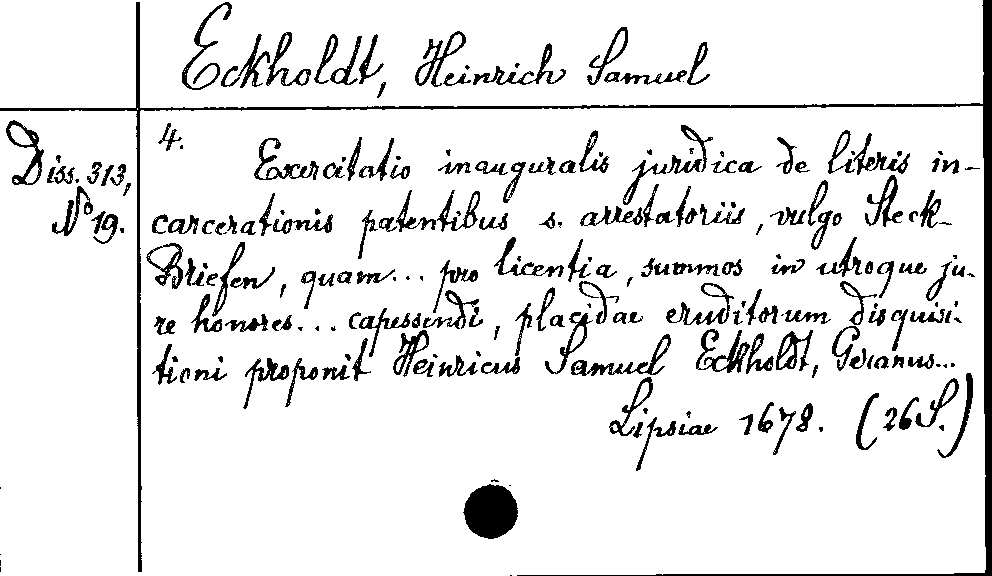 Eckholdt, Heinrich Samuel
Diss. 313,
No 19.
4.
Exercitatio inauguralis juridica de literis in-
carcerationis patentibus s. arrestatoriis, vulgo Steck-
Briefen, quam... pro licentia, summos in utroque ju-
re honores... capessendi, placidae eruditorum disquisi-
tioni proponit Heinricus Samuel Eckholdt, Geranus...
Lipsiae 1678. (26 S.)